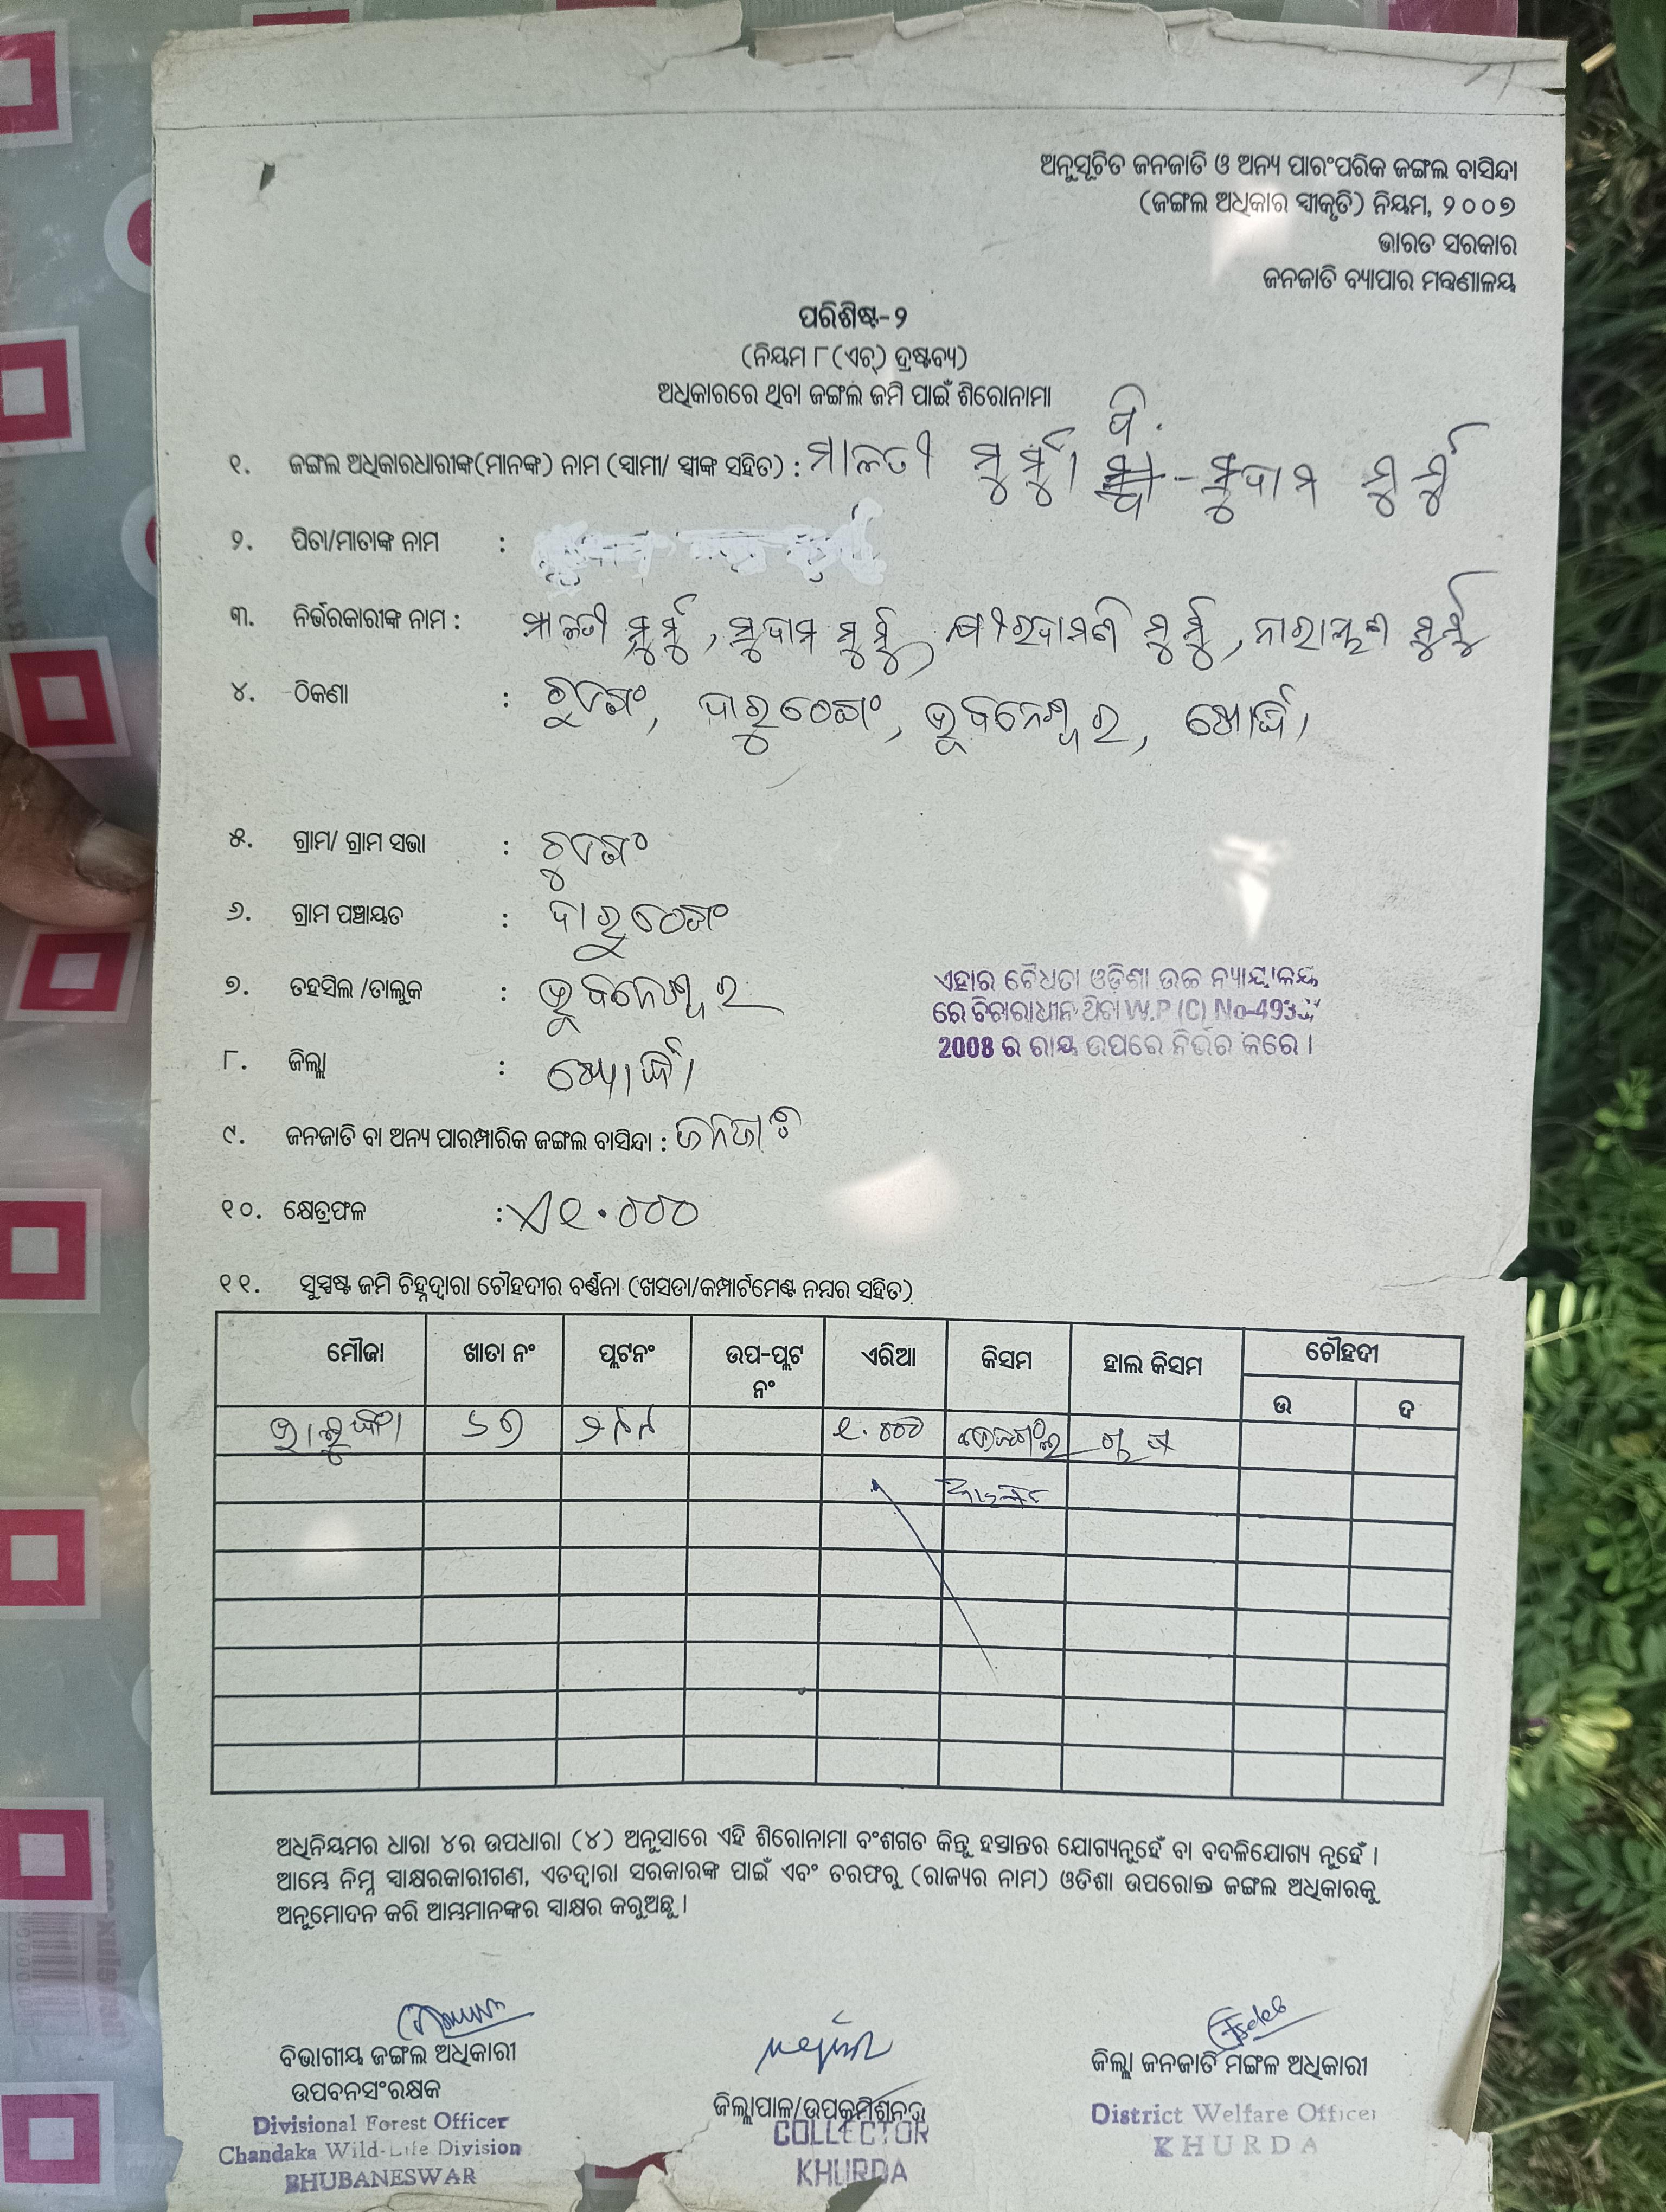 ଅନୁସୂଚିତ ଜନଜାତି ଓ ଅନ୍ୟ ପାରଂପରିକ ଜଙ୍ଗଲ ବାସିନ୍ଦା
(ଜଙ୍ଗଲ ଅଧିକାର ସ୍ୱୀକୃତି) ନିୟମ, ୨୦୦୭
ଭାରତ ସରକାର
ଜନଜାତି ବ୍ୟାପାର ମନ୍ତ୍ରଣାଳୟ
ପରିଶିଷ୍ଟ-୨
(ନିୟମ ୮ (ଏଚ୍) ଦ୍ରଷ୍ଟବ୍ୟ)
ଅଧିକାରରେ ଥିବା ଜଙ୍ଗଲ ଜମି ପାଇଁ ଶିରୋନାମା
୧. ଜଙ୍ଗଲ ଅଧିକାରଧାରୀଙ୍କ(ମାନଙ୍କ) ନାମ (ସ୍ୱାମୀ/ ସ୍ତ୍ରୀଙ୍କ ସହିତ) : ମାଳତୀ ମୁର୍ମୁ। ପି. - ସୁଦାମ ମୁର୍ମୁ
୨. ପିତା/ମାତାଙ୍କ ନାମ :
୩. ନିର୍ଭରକାରୀଙ୍କ ନାମ : ମାଳତୀ ମୁର୍ମୁ, ସୁଦାମ ମୁର୍ମୁ, ମୁର୍ମୁ, ନାରାୟଣ ମୁର୍ମୁ
୪. ଠିକଣା : ଦାରୁଠେଙ୍ଗ, ଭୁବନେଶ୍ୱର, ଖୋର୍ଦ୍ଧା
୫. ଗ୍ରାମ/ ଗ୍ରାମ ସଭା :
୬. ଗ୍ରାମ ପଞ୍ଚାୟତ : ଦାରୁଠେଙ୍ଗ
୭. ତହସିଲ /ତାଲୁକ : ଭୁବନେଶ୍ୱର
୮. ଜିଲ୍ଲା : ଖୋର୍ଦ୍ଧା
୯. ଜନଜାତି ବା ଅନ୍ୟ ପାରମ୍ପାରିକ ଜଙ୍ଗଲ ବାସିନ୍ଦା : ଜନଜାତି
୧୦. କ୍ଷେତ୍ରଫଳ : ଏ୧.୦୦୦
ଏହାର ବୈଧତା ଓଡ଼ିଶା ଉଚ୍ଚ ନ୍ୟାୟାଳୟ
ରେ ବିଚାରାଧୀନ ଥିବା W.P (C) No-
2008 ର ରାୟ ଉପରେ ନିର୍ଭର କରେ।
୧୧. ସୁସ୍ପଷ୍ଟ ଜମି ଚିହ୍ନଦ୍ୱାରା ଚୌହଦୀର ବର୍ଣ୍ଣନା (ଖସଡା/କମ୍ପାର୍ଟମେଣ୍ଟ ନମ୍ବର ସହିତ)
ମୌଜା ଖାତା ନଂ ପ୍ଲଟନଂ ଉପ-ପ୍ଲଟ ନଂ ଏରିଆ କିସମ ହାଲ କିସମ ଚୌହଦୀ
ଉ ଦ
୧.୦୦୦
ଅଧିନିୟମର ଧାରା ୪ର ଉପଧାରା (୪) ଅନୁସାରେ ଏହି ଶିରୋନାମା ବଂଶଗତ କିନ୍ତୁ ହସ୍ତାନ୍ତର ଯୋଗ୍ୟନୁହେଁ ବା ବଦଳିଯୋଗ୍ୟ ନୁହେଁ।
ଆମ୍ଭେ ନିମ୍ନ ସ୍ୱାକ୍ଷରକାରୀଗଣ, ଏତଦ୍ୱାରା ସରକାରଙ୍କ ପାଇଁ ଏବଂ ତରଫରୁ (ରାଜ୍ୟର ନାମ) ଓଡିଶା ଉପରୋକ୍ତ ଜଙ୍ଗଲ ଅଧିକାରକୁ
ଅନୁମୋଦନ କରି ଆମ୍ଭମାନଙ୍କର ସ୍ୱାକ୍ଷର କରୁଅଛୁ।
ବିଭାଗୀୟ ଜଙ୍ଗଲ ଅଧିକାରୀ
ଉପବନସଂରକ୍ଷକ
Divisional Forest Officer
Chandaka Wild-Life Division
BHUBANESWAR
ଜିଲ୍ଲାପାଳ/ଉପକମିଶନର
COLLECTOR
KHURDA
ଜିଲ୍ଲା ଜନଜାତି ମଙ୍ଗଳ ଅଧିକାରୀ
District Welfare Officer
KHURDA